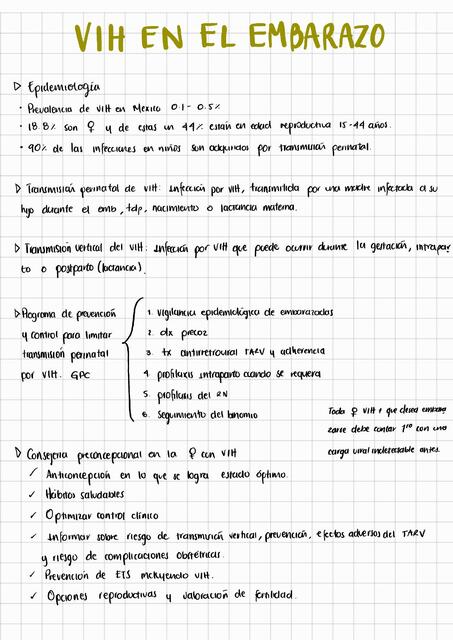 VIH EN EL EMBARAZO
▷ Epidemiología
• Prevalencia de VIH en México 0.1 - 0.5%
• 18.8% son ♀ y de estas un 44% están en edad reproductiva 15-44 años.
• 90% de las infecciones en niños son adquiridos por transmisión perinatal.
▷ Transmisión perinatal de VIH: infección por VIH, transmitida por una madre infectada a su
hijo durante el emb, tdp, nacimiento o lactancia materna.
▷ Transmisión vertical del VIH: infección por VIH que puede ocurrir durante la gestación, intrapar
to o postparto (lactancia).
▷ Programa de prevención
y control para limitar
transmisión perinatal
por VIH. GPC
1. vigilancia epidemiológica de embarazadas
2. dx precoz
3. tx antirretroviral TARV y adherencia
4. profilaxis intraparto cuando se requiera
5. profilaxis del RN
6. Seguimiento del binomio
Toda ♀ VIH+ que desea embara
zarse debe contar 1ro con una
carga viral indetectable antes.
▷ Consejería preconcepcional en la ♀ con VIH
✓ Anticoncepción en lo que se logra estado óptimo.
✓ Hábitos saludables
✓ Optimizar control clínico
✓ Informar sobre riesgo de transmisión vertical, prevención, efectos adversos del TARV
y riesgo de complicaciones obstétricas.
✓ Prevención de ETS incluyendo VIH.
✓ Opciones reproductivas y valoración de fertilidad.